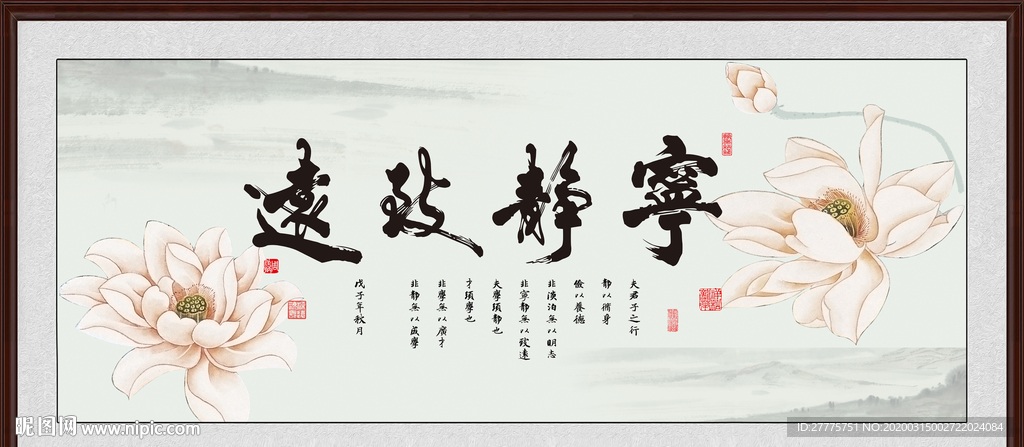 寧靜致遠
夫君子之行
靜以修身
儉以養德
非淡泊無以明志
非寧靜無以致遠
夫學須靜也
才須學也
非學無以廣才
非靜無以成學
戊子年秋月
昵图网 www.nipic.com
ID:27775751 NO:20200315002722024084